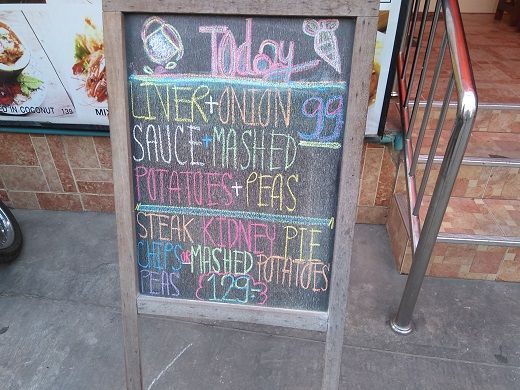 Today
LIVER + ONION 99
SAUCE + MASHED
POTATOES + PEAS
STEAK KIDNEY PIE
CHIPS or MASHED POTATOES
PEAS 129-
IN COCONUT 139
MIX